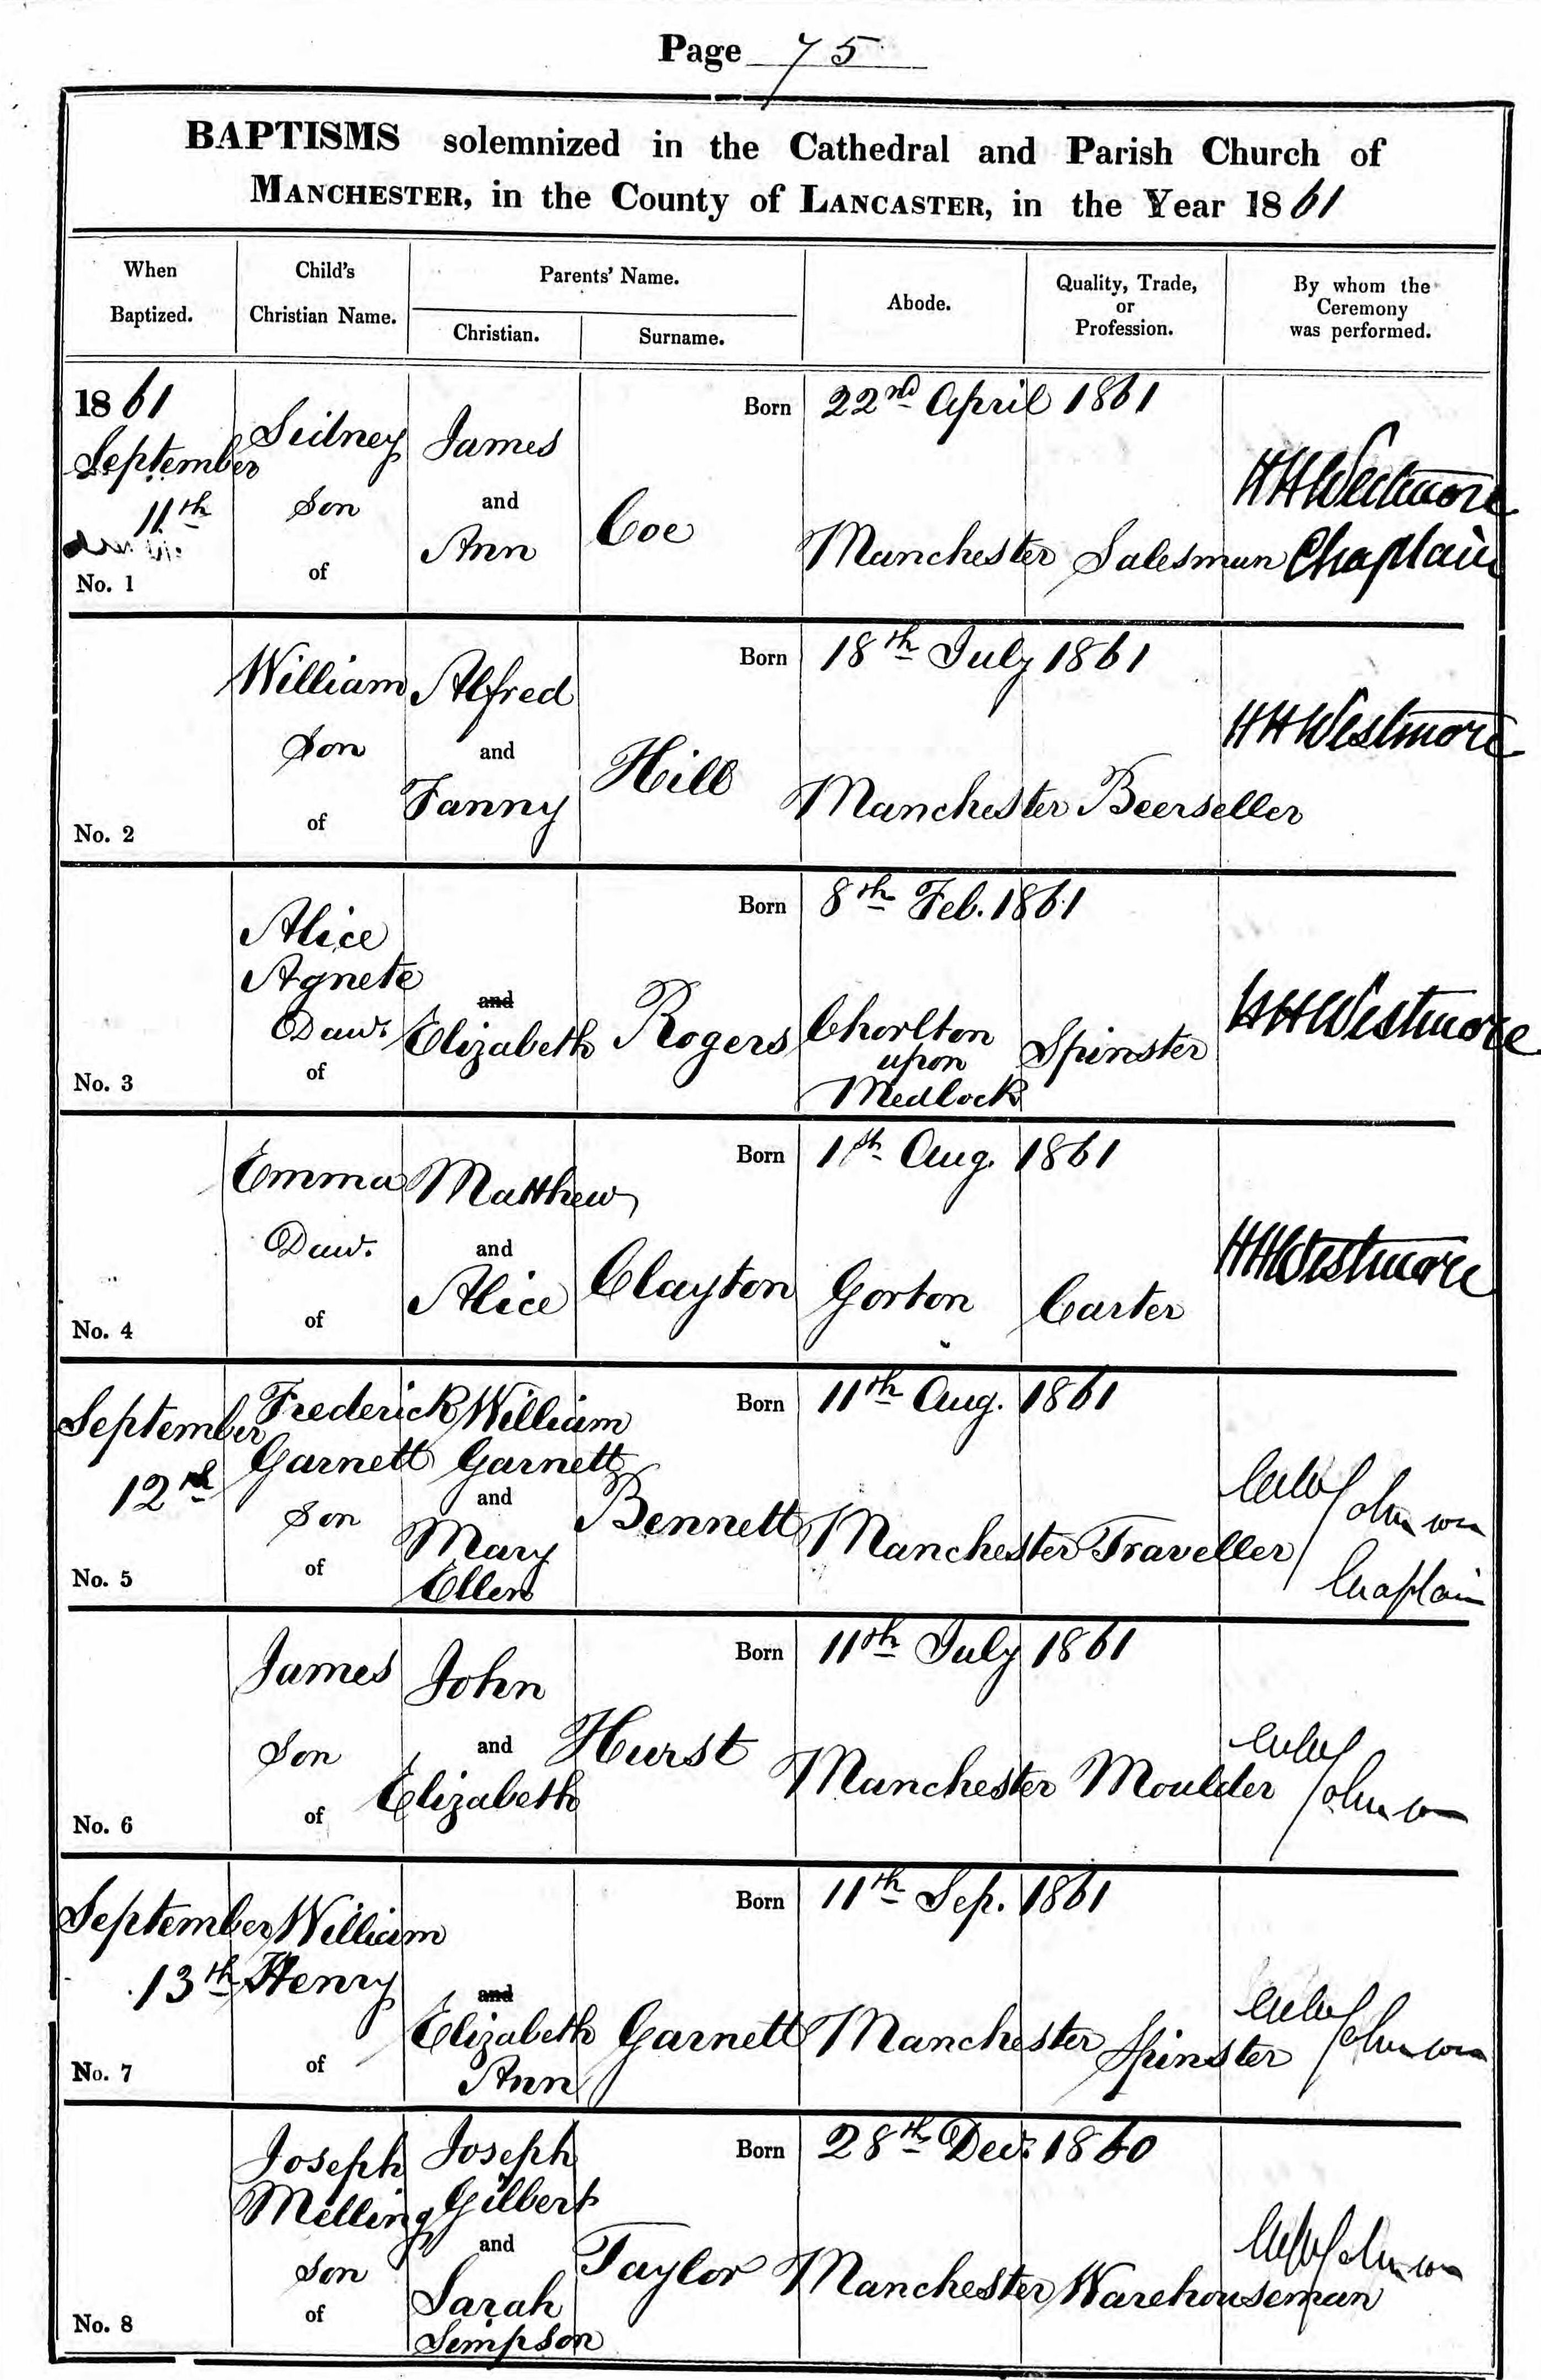 Page 75
BAPTISMS solemnized in the Cathedral and Parish Church of
MANCHESTER, in the County of LANCASTER, in the Year 1861
When Baptized.
Child's Christian Name.
Parents' Name.
Christian.
Surname.
Abode.
Quality, Trade, or Profession.
By whom the Ceremony was performed.
1861
September
11th
No. 1
Sidney
Son
of
James
and
Ann
Coe
Born 22nd April 1861
Manchester
Salesman
HHWestmore
Chaplain
No. 2
William
Son
of
Alfred
and
Fanny
Hill
Born 18th July 1861
Manchester
Beerseller
HHWestmore
No. 3
Alice
Agnete
Daw.
of
and
Elizabeth
Rogers
Born 8th Feb. 1861
Chorlton
upon
Medlock
Spinster
HHWestmore
No. 4
Emma
Daw.
of
Matthew
and
Alice
Clayton
Born 1st Aug. 1861
Gorton
Carter
HHWestmore
September
12th
No. 5
Frederick
Garnett
Son
of
William
Garnett
and
Mary
Ellen
Bennett
Born 11th Aug. 1861
Manchester
Traveller
Johnson
Chaplain
No. 6
James
Son
of
John
and
Elizabeth
Hurst
Born 11th July 1861
Manchester
Moulder
Johnson
September
13th
No. 7
William
Henry
of
and
Elizabeth
Ann
Garnett
Born 11th Sep. 1861
Manchester
Spinster
Johnson
No. 8
Joseph
Melling
Son
of
Joseph
Gilbert
and
Sarah
Simpson
Taylor
Born 28th Dec. 1860
Manchester
Warehouseman
Johnson